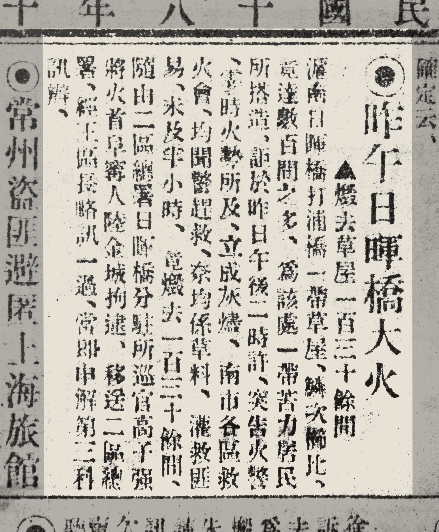 民國十八年十
確定云、
◉昨午日暉橋大火
▲燬去草屋一百三十餘間
滬南日暉橋打浦橋一帶草屋、鱗次櫛比、
竟達數百間之多、爲該處一帶苦力居民
所搭造、詎於昨日午後二時許、突告火警
、霎時火勢所及、立成灰燼、南市各區救
火會、均聞警趕救、奈均係草料、灌救匪
易、未及半小時、竟燬去一百三十餘間、
隨由二區總署日暉橋分駐所巡官高子强
將火首阜甯人陸金城拘逮、移送二區總
署、經王區長略訊一過、當即申解第三科
訊辦、
◉常州盜匪避匿上海旅館